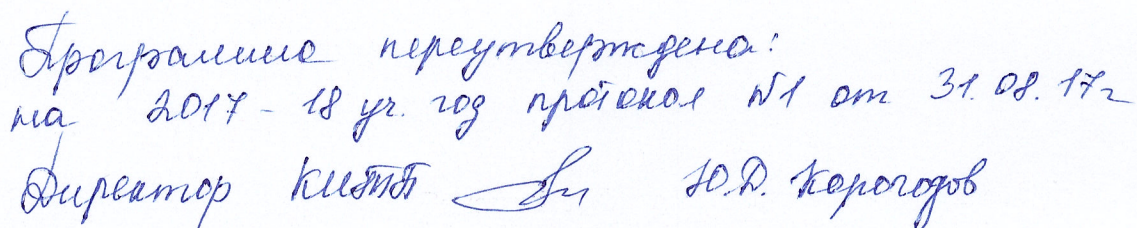 Программа переутверждена:
на 2017-18 уч. год протокол №1 от 31.08.17г
Директор КИТТ Ю.Д. Корогодов